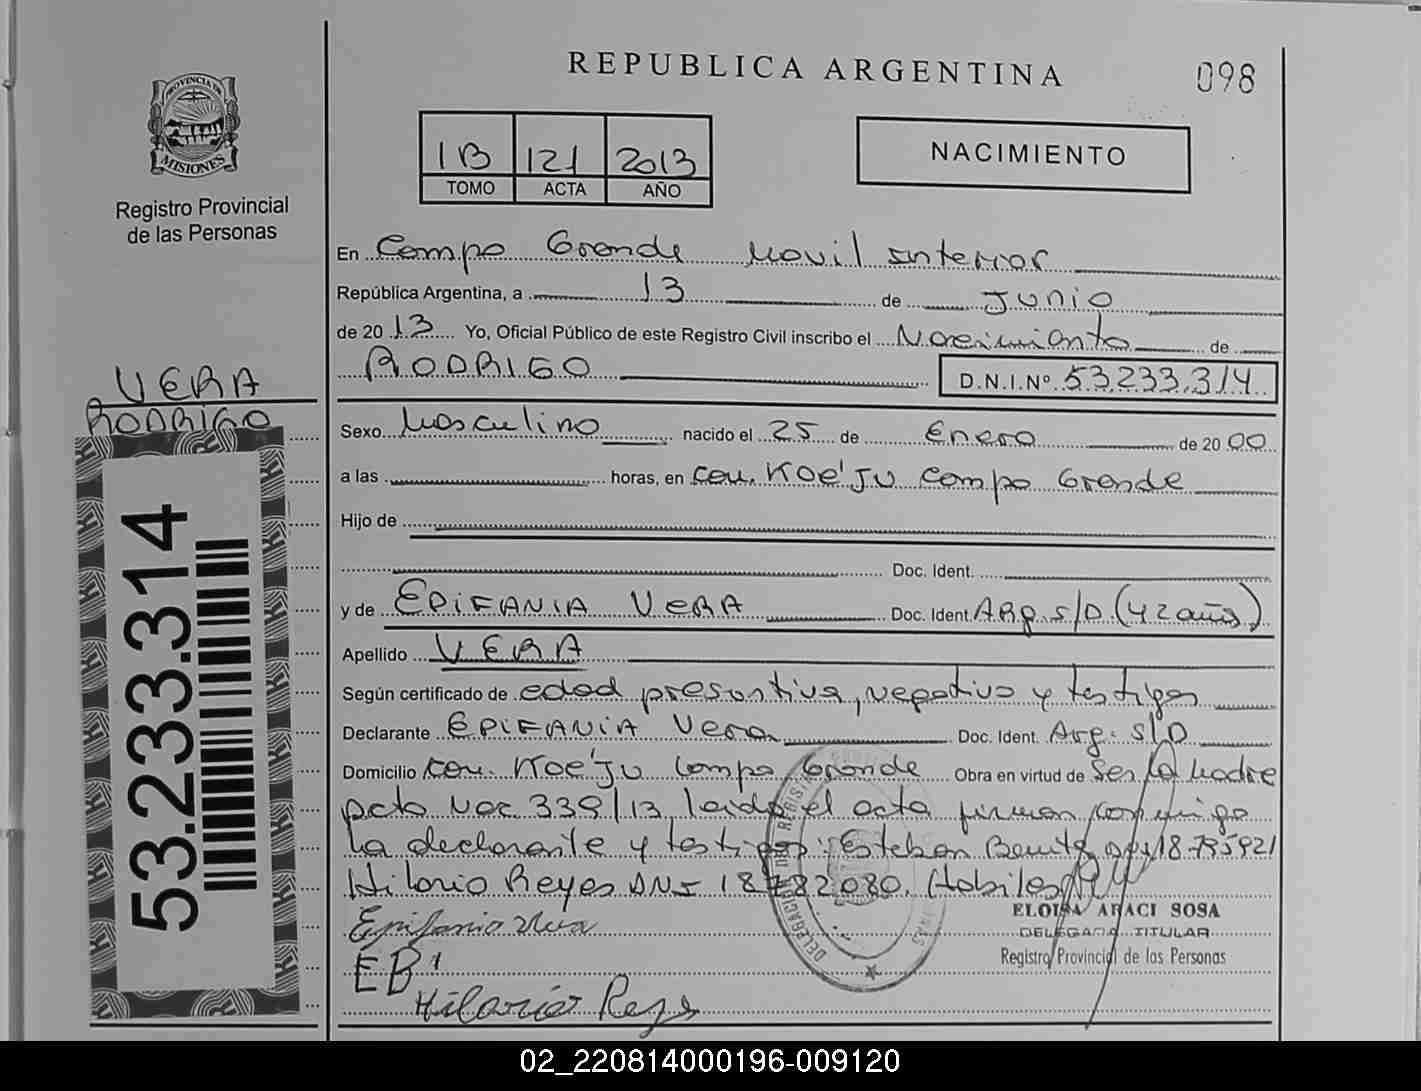 REPUBLICA ARGENTINA
098
PROVINCIA DE
MISIONES
Registro Provincial
de las Personas
1B 121 2013
TOMO ACTA AÑO
NACIMIENTO
En Campo Grande Movil interior
República Argentina, a 13 de Junio
de 20 13 Yo, Oficial Público de este Registro Civil inscribo el Nacimiento de
RODRIGO D.N.I.Nº 53.233.314
VERA
RODRIGO
53.233.314
Sexo Masculino nacido el 25 de Enero de 20 00
a las horas, en Com. Koe'Ju Campo Grande
Hijo de
Doc. Ident.
y de EPIFANIA VERA Doc. Ident. Arg. S/D (42 años)
Apellido VERA
Según certificado de edad presuntiva, negativo y testigos
Declarante EPIFANIA Vera Doc. Ident. Arg. S/D
Domicilio Com. Koe'Ju Campo Grande Obra en virtud de Ser la Madre
Nac 339/13 leida el acta firman conmigo
La declarante y testigos: Esteban Benitez 18.795921
Hilario Reyes DNI 18782080. Habiles
ELOISA ARACI SOSA
DELEGADA TITULAR
Registro Provincial de las Personas
Epifania Vera
EB
Hilario Reys
02_220814000196-009120